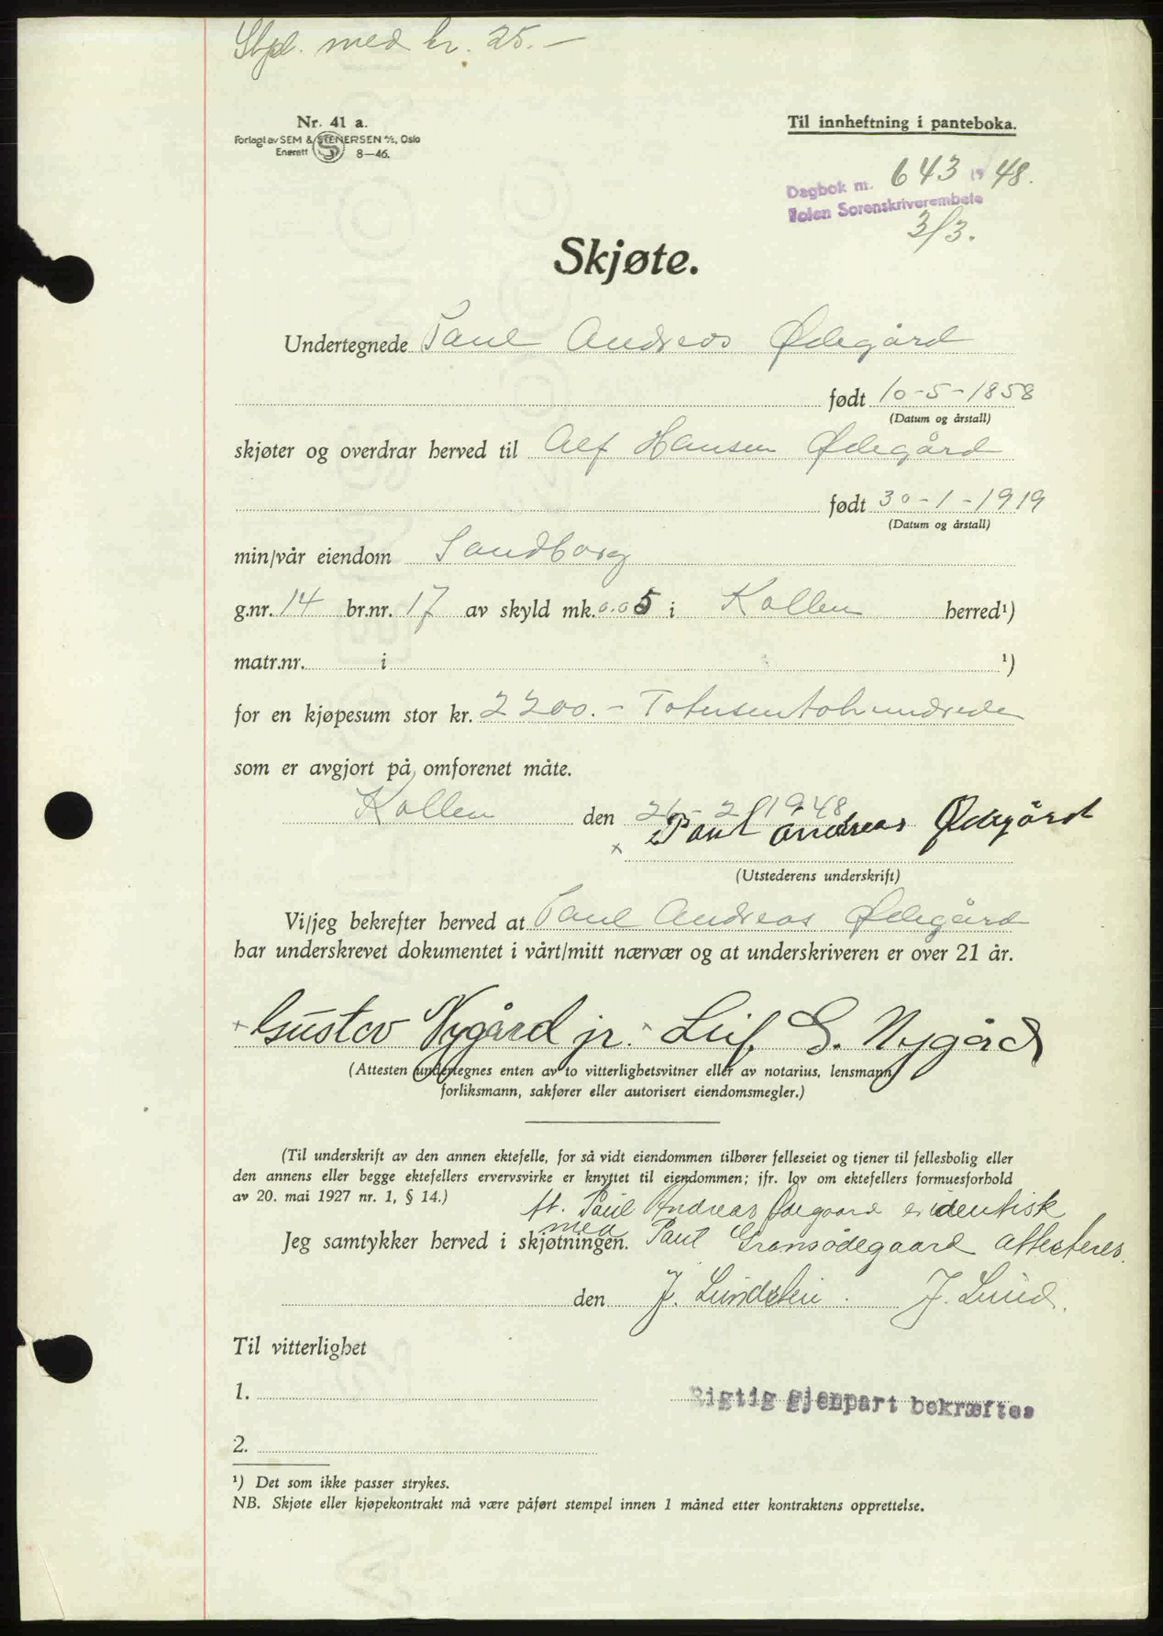 Stpl. med kr. 25.-
Nr. 41 a.
Forlagt av SEM & STENERSEN A/S, Oslo
Enerett 8—46.
Til innheftning i panteboka.
Dagbok nr. 643 19 48.
Sorenskriverembete
3/3.
Skjøte.
Undertegnede Paul Andreas Ødegård
født 10-5-1858
(Datum og årstall)
skjøter og overdrar herved til Alf Hansen Ødegård
født 30-1-1919
(Datum og årstall)
min/vår eiendom Sandborg
g.nr. 14 br.nr. 17 av skyld mk. 0.05 i Kolbu herred¹)
matr.nr. i ¹)
for en kjøpesum stor kr. 2200.- Totusentohundrede
som er avgjort på omforenet måte.
Kolbu den 26-2 1948
x Paul Andreas Ødegård
(Utstederens underskrift)
Vi/jeg bekrefter herved at Paul Andreas Ødegård
har underskrevet dokumentet i vårt/mitt nærvær og at underskriveren er over 21 år.
x Gustav Nygård jr. x Leif G. Nygård
(Attesten undertegnes enten av to vitterlighetsvitner eller av notarius, lensmann,
forliksmann, sakfører eller autorisert eiendomsmegler.)
(Til underskrift av den annen ektefelle, for så vidt eiendommen tilhører felleseiet og tjener til fellesbolig eller
den annens eller begge ektefellers ervervsvirke er knyttet til eiendommen; jfr. lov om ektefellers formuesforhold
av 20. mai 1927 nr. 1, § 14.)
At. Paul Andreas Ødegaard er identisk
med Paul Gransødegaard attesteres.
Jeg samtykker herved i skjøtningen.
den J. Lundstein. J. Lund.
Til vitterlighet
1.
Rigtig gjenpart bekræftes
2.
¹) Det som ikke passer strykes.
NB. Skjøte eller kjøpekontrakt må være påført stempel innen 1 måned etter kontraktens opprettelse.